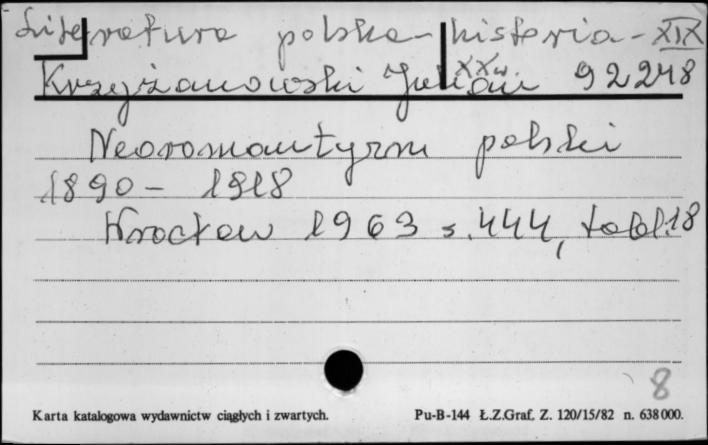 Literatura polska - historia - XIX
XX w.
Krzyżanowski Julian 92248
Neoromantyzm polski
1890 - 1918
Wrocław 1963 s. 444, tabl. 18
8
Karta katalogowa wydawnictw ciągłych i zwartych. Pu-B-144 Ł.Z.Graf. Z. 120/15/82 n. 638000.